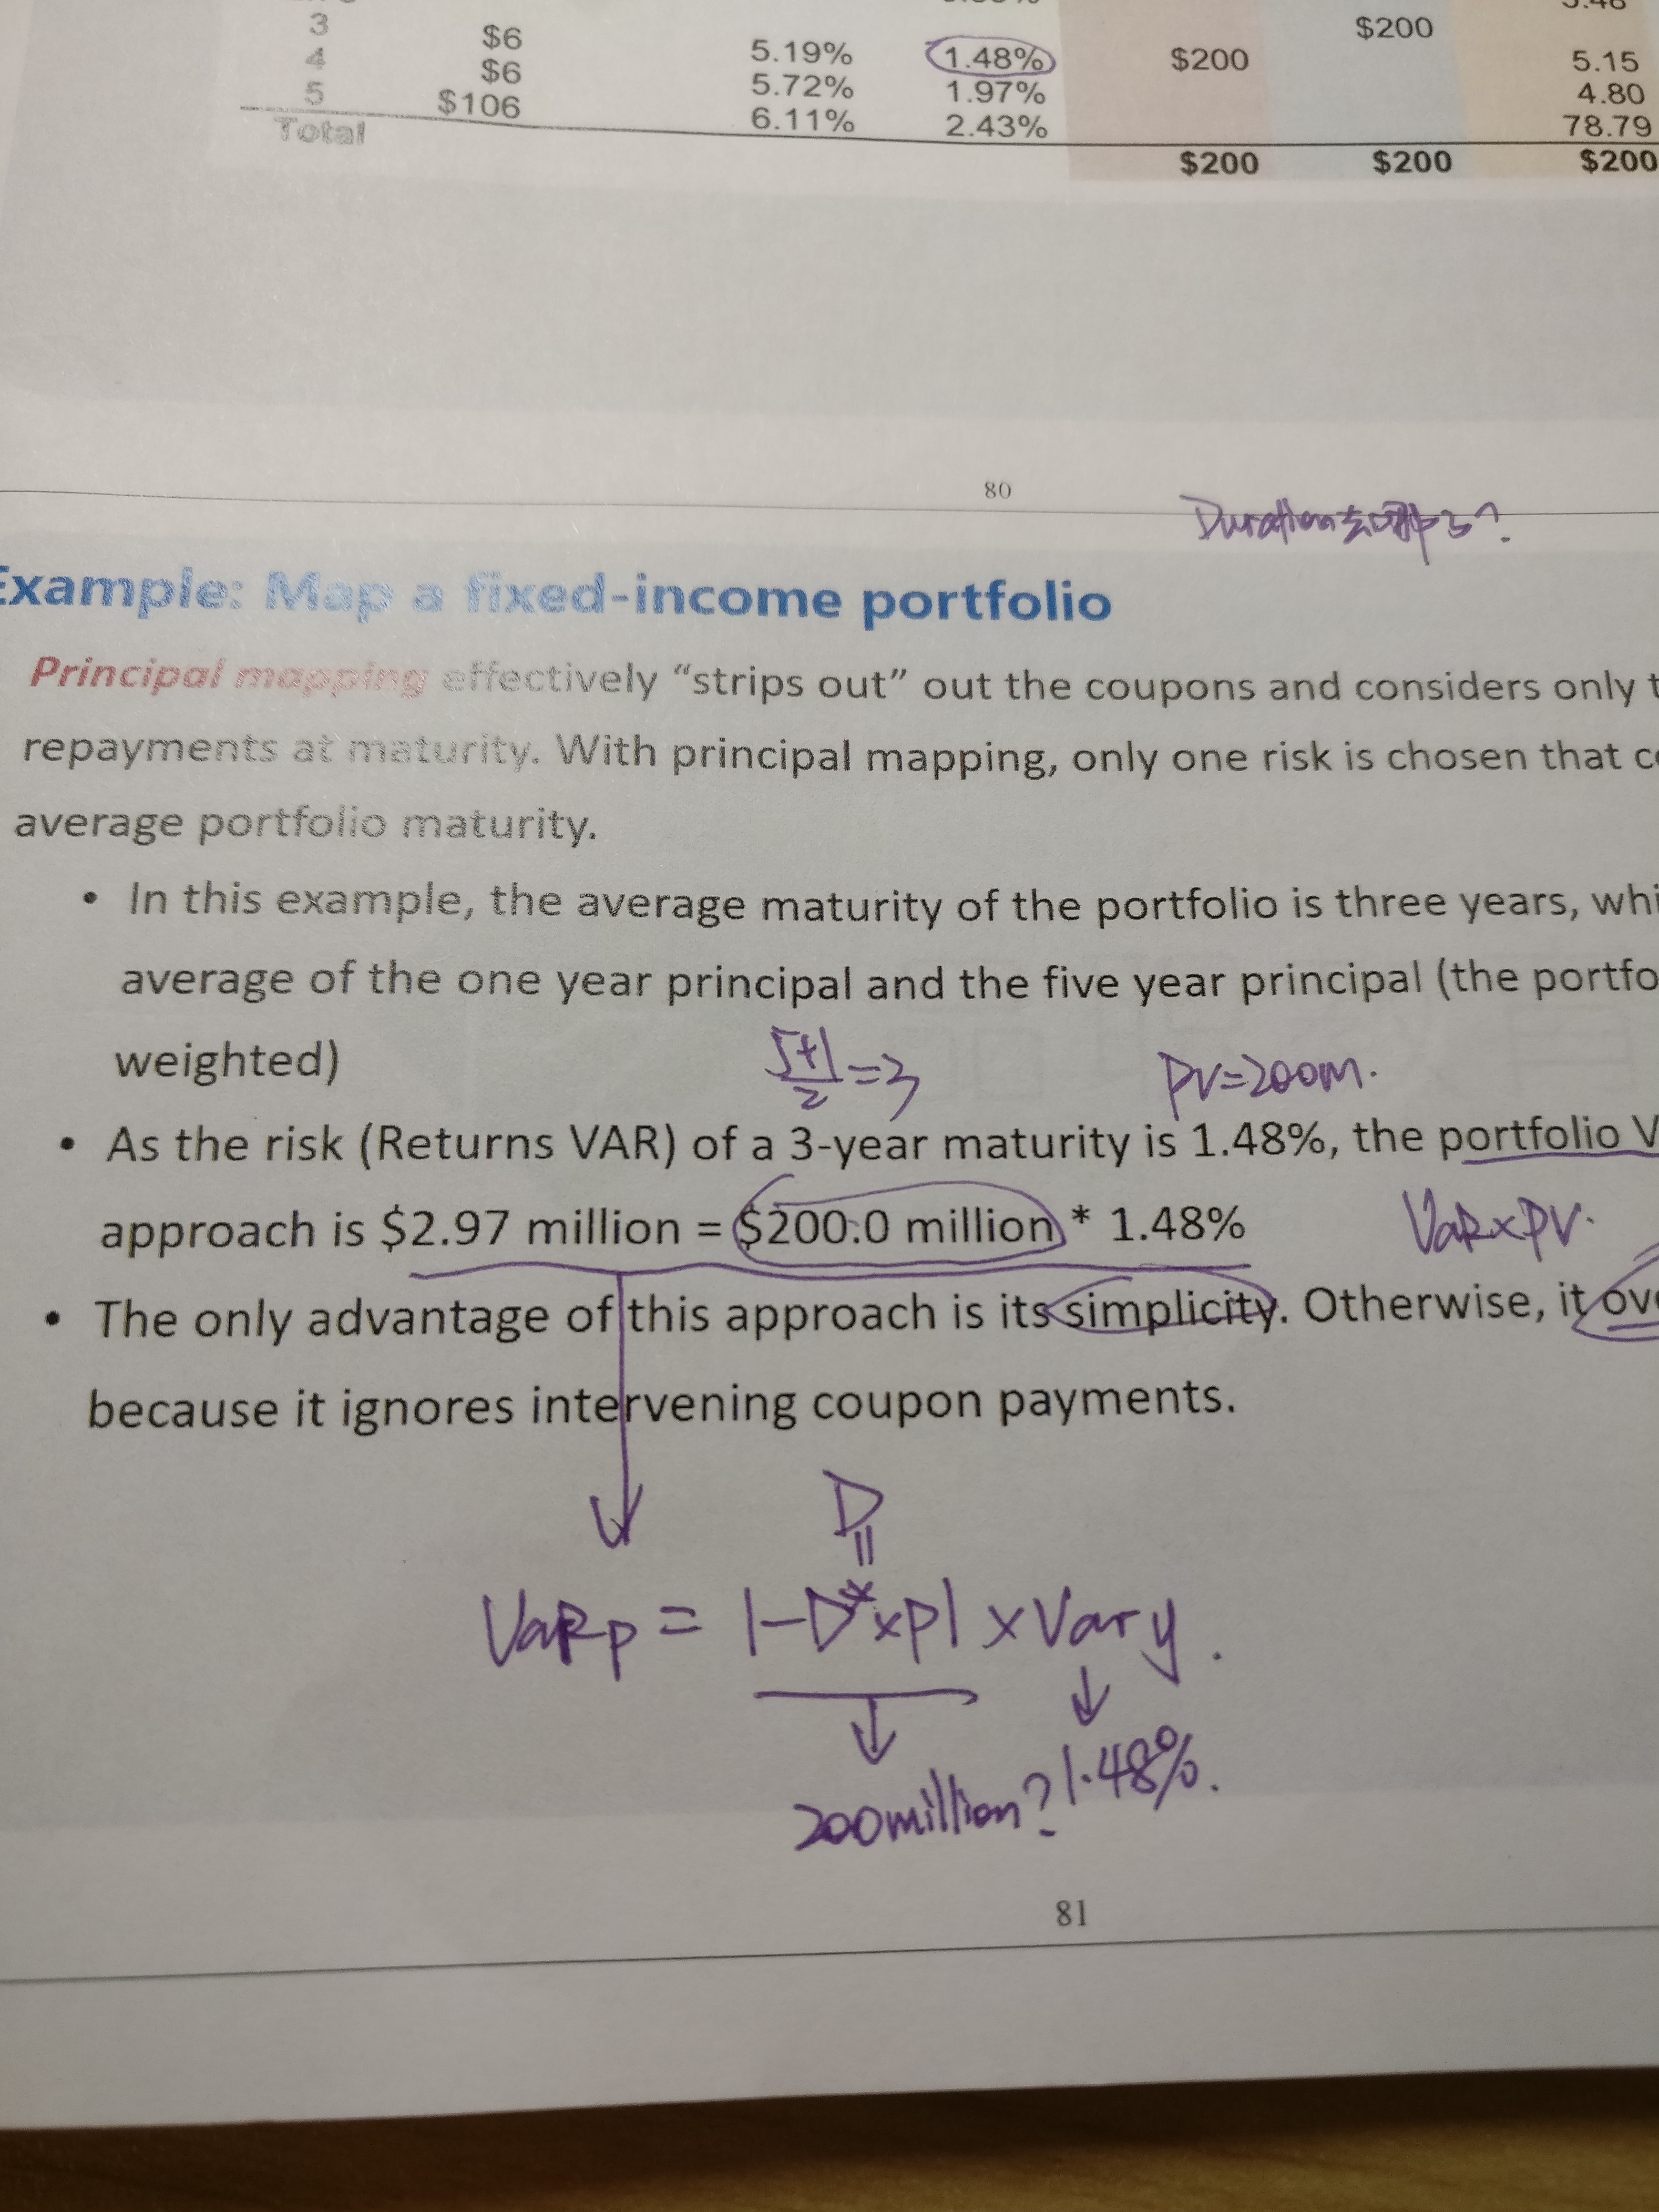 3 $6 5.19% 1.48% $200 $200 5.15
4 $6 5.72% 1.97% 4.80
5 $106 6.11% 2.43% 78.79
Total $200 $200 $200
80
Duration去哪了?
Example: Map a fixed-income portfolio
Principal mapping effectively “strips out” out the coupons and considers only
repayments at maturity. With principal mapping, only one risk is chosen that
average portfolio maturity.
• In this example, the average maturity of the portfolio is three years,
average of the one year principal and the five year principal (the
weighted)
5+1/2=3 PV=200m.
• As the risk (Returns VAR) of a 3-year maturity is 1.48%, the portfolio
approach is $2.97 million = $200.0 million * 1.48%
VaR×PV.
• The only advantage of this approach is its simplicity. Otherwise, it
because it ignores intervening coupon payments.
D
=
VaRp = |-D*×P| × Vary.
200million? 1.48%.
81